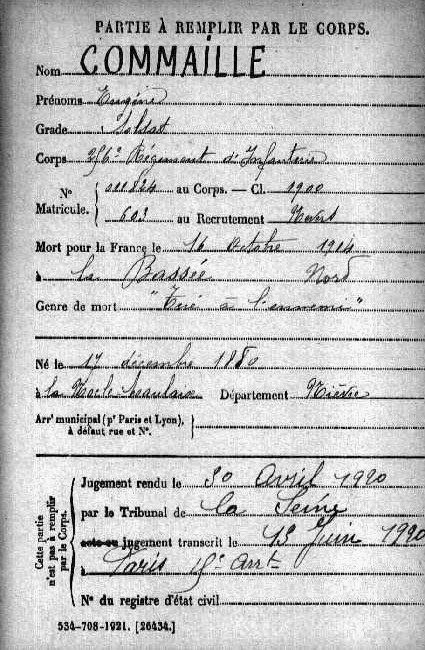 PARTIE À REMPLIR PAR LE CORPS.
Nom COMMAILLE
Prénoms Eugène
Grade Soldat
Corps 256e Régiment d'Infanterie
N° Matricule. { 011854 au Corps. — Cl. 1900
603 au Recrutement Nevers
Mort pour la France le 16 octobre 1914
à la Bassée Nord
Genre de mort "Tué à l'ennemi"
Né le 17 décembre 1880
à la Nocle-Maulaix Département Nièvre
Arrt municipal (pr Paris et Lyon), à défaut rue et N°.
Cette partie n'est pas à remplir par le Corps.
Jugement rendu le 30 Avril 1920
par le Tribunal de la Seine
acte ou jugement transcrit le 15 Juin 1920
à Paris Arrt
N° du registre d'état civil
534-708-1921. [26434.]